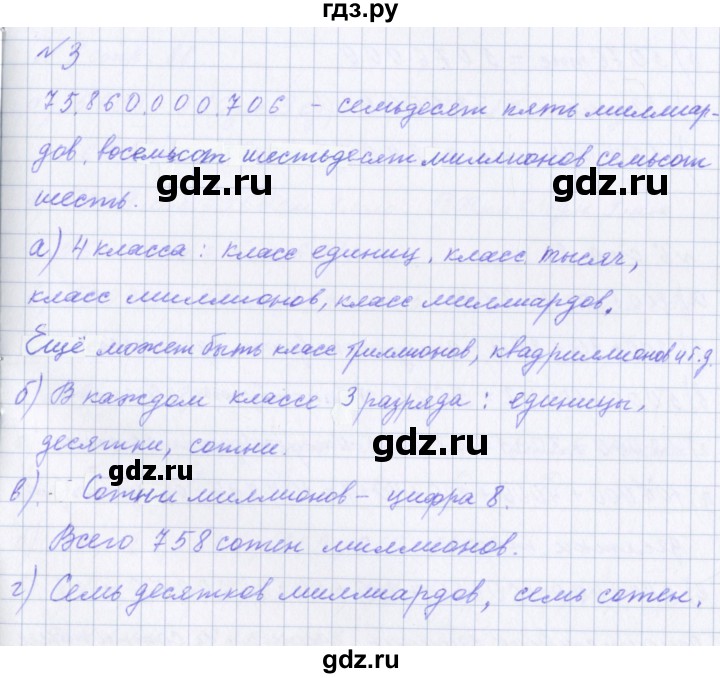 гдз.ру
№3
75.860.000.706 – семьдесят пять миллиар-
дов восемьсот шестьдесят миллионов семьсот
gdz.ru gdz.ru
шесть.
а) 4 класса: класс единиц, класс тысяч,
класс миллионов, класс миллиардов.
Ещё может быть класс триллионов, квадриллионов и т.д.
б) В каждом классе 3 разряда: единицы,
десятки, сотни.
gdz.ru
gdz.ru
в) Сотни миллионов – цифра 8.
Всего 758 сотен миллионов.
г) Семь десятков миллиардов, семь сотен.
gdz.ru